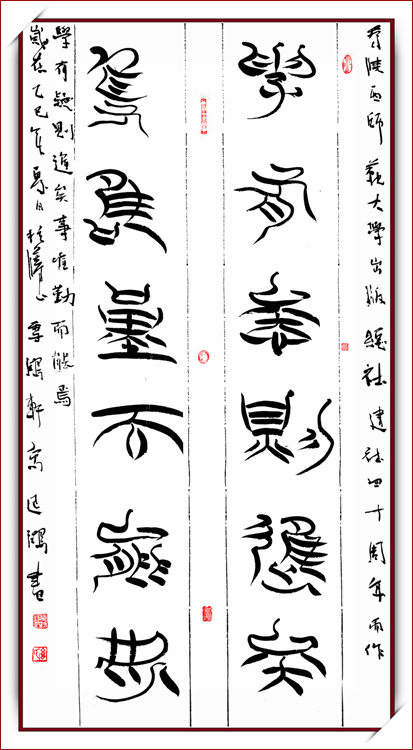 為陝西師範大學出版總社建社四十周年而作
學有疑則進矣
事唯勤而能焉
學有疑則進矣事唯勤而能焉
歲在乙巳年夏月於軒高延鴻書